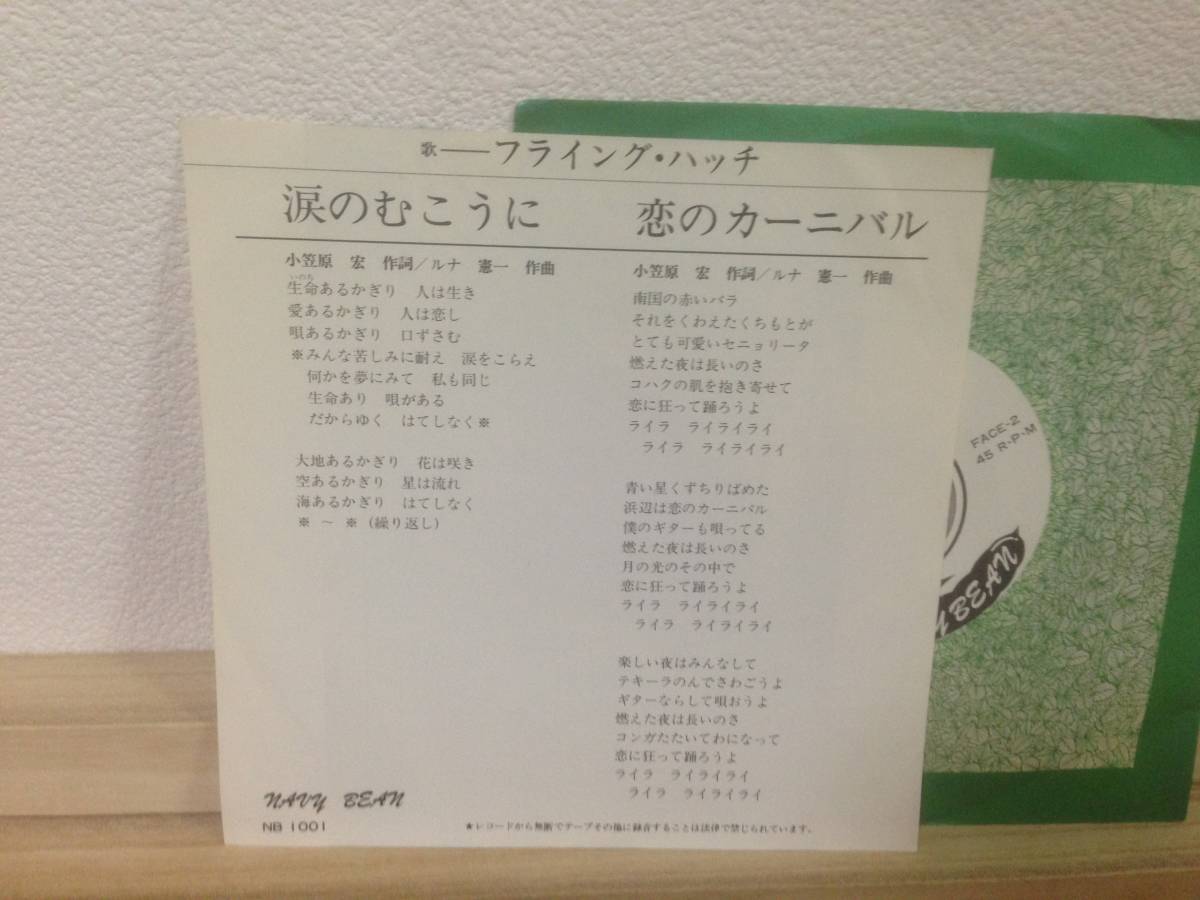 歌――フライング・ハッチ
涙のむこうに
小笠原 宏 作詞／ルナ 憲一 作曲
いのち
生命あるかぎり 人は生き
愛あるかぎり 人は恋し
唄あるかぎり 口ずさむ
※みんな苦しみに耐え 涙をこらえ
何かを夢にみて 私も同じ
生命あり 唄がある
だからゆく はてしなく※
大地あるかぎり 花は咲き
空あるかぎり 星は流れ
海あるかぎり はてしなく
※ ～ ※ (繰り返し)
恋のカーニバル
小笠原 宏 作詞／ルナ 憲一 作曲
南国の赤いバラ
それをくわえたくちもとが
とても可愛いセニョリータ
燃えた夜は長いのさ
コハクの肌を抱き寄せて
恋に狂って踊ろうよ
ライラ ライライライ
ライラ ライライライ
青い星くずちりばめた
浜辺は恋のカーニバル
僕のギターも唄ってる
燃えた夜は長いのさ
月の光のその中で
恋に狂って踊ろうよ
ライラ ライライライ
ライラ ライライライ
楽しい夜はみんなして
テキーラのんでさわごうよ
ギターならして唄おうよ
燃えた夜は長いのさ
コンガたたいてわになって
恋に狂って踊ろうよ
ライラ ライライライ
ライラ ライライライ
NAVY BEAN
NB 1001
★レコードから無断でテープその他に録音することは法律で禁じられています。
FACE-2
45 R・P・M
Y BEAN